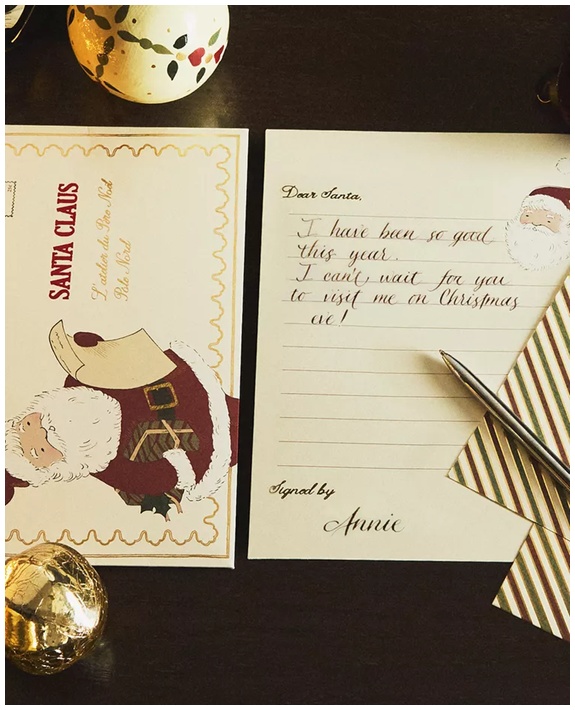 SANTA CLAUS
L'atelier du Père Noël
Pole Nord
Dear Santa,
I have been so good
this year.
I can't wait for you
to visit me on Christmas
eve!
Signed by
Annie